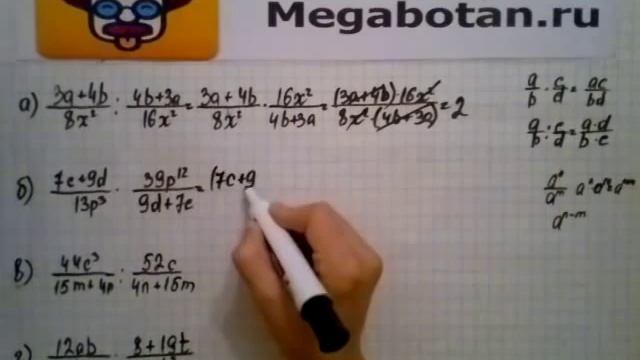 Megabotan.ru
а) (3a+4b)/(8x²) : (4b+3a)/(16x²) = (3a+4b)/(8x²) · (16x²)/(4b+3a) = ((3a+4b)·16x²)/(8x²·(4b+3a)) = 2
a/b · c/d = ac/bd
a/b : c/d = a·d/b·c
б) (7c+9d)/(13p³) · (39p¹²)/(9d+7c) = (7c+9
aⁿ/aᵐ
aⁿ⁻ᵐ
в) (44c³)/(15m+4n) : (52c)/(4n+15m)
12ab 8+19t